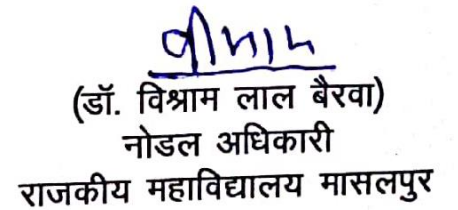 (डॉ. विश्राम लाल बैरवा)
नोडल अधिकारी
राजकीय महाविद्यालय मासलपुर